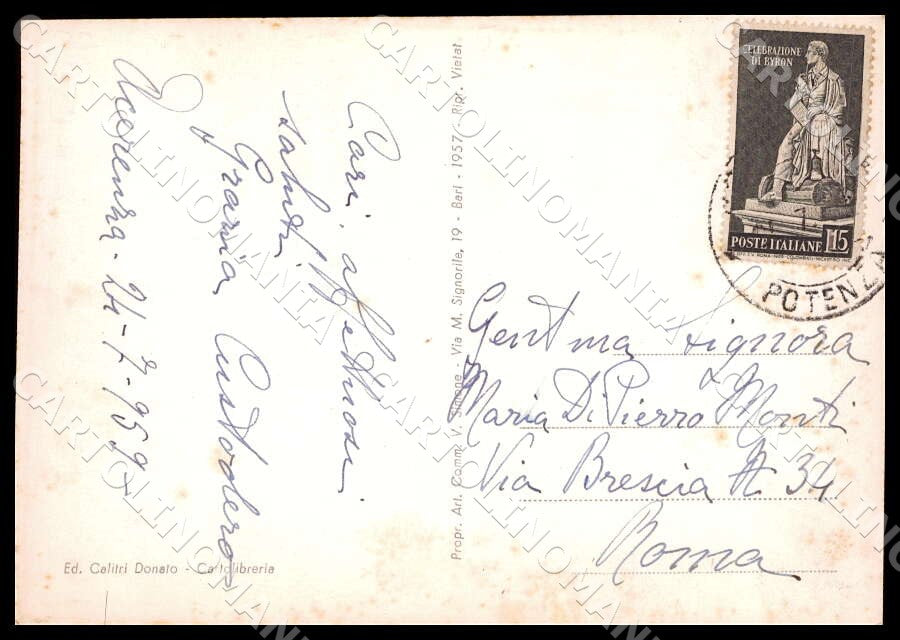 Acerenza - 24-7-959
Cari, affettuosi
saluti
Grazia
CELEBRAZIONE
DI BYRON
POSTE ITALIANE L15
POTENZA
Gent ma Signora
Maria Di Pierro Monti
Via Brescia N 34
Roma
Propr. Art. Comm. V. Simone - Via M. Signorile, 19 - Bari - 1957 - Rip. Vietat
Ed. Calitri Donato - Cartolibreria
CARTOLINOMANIA